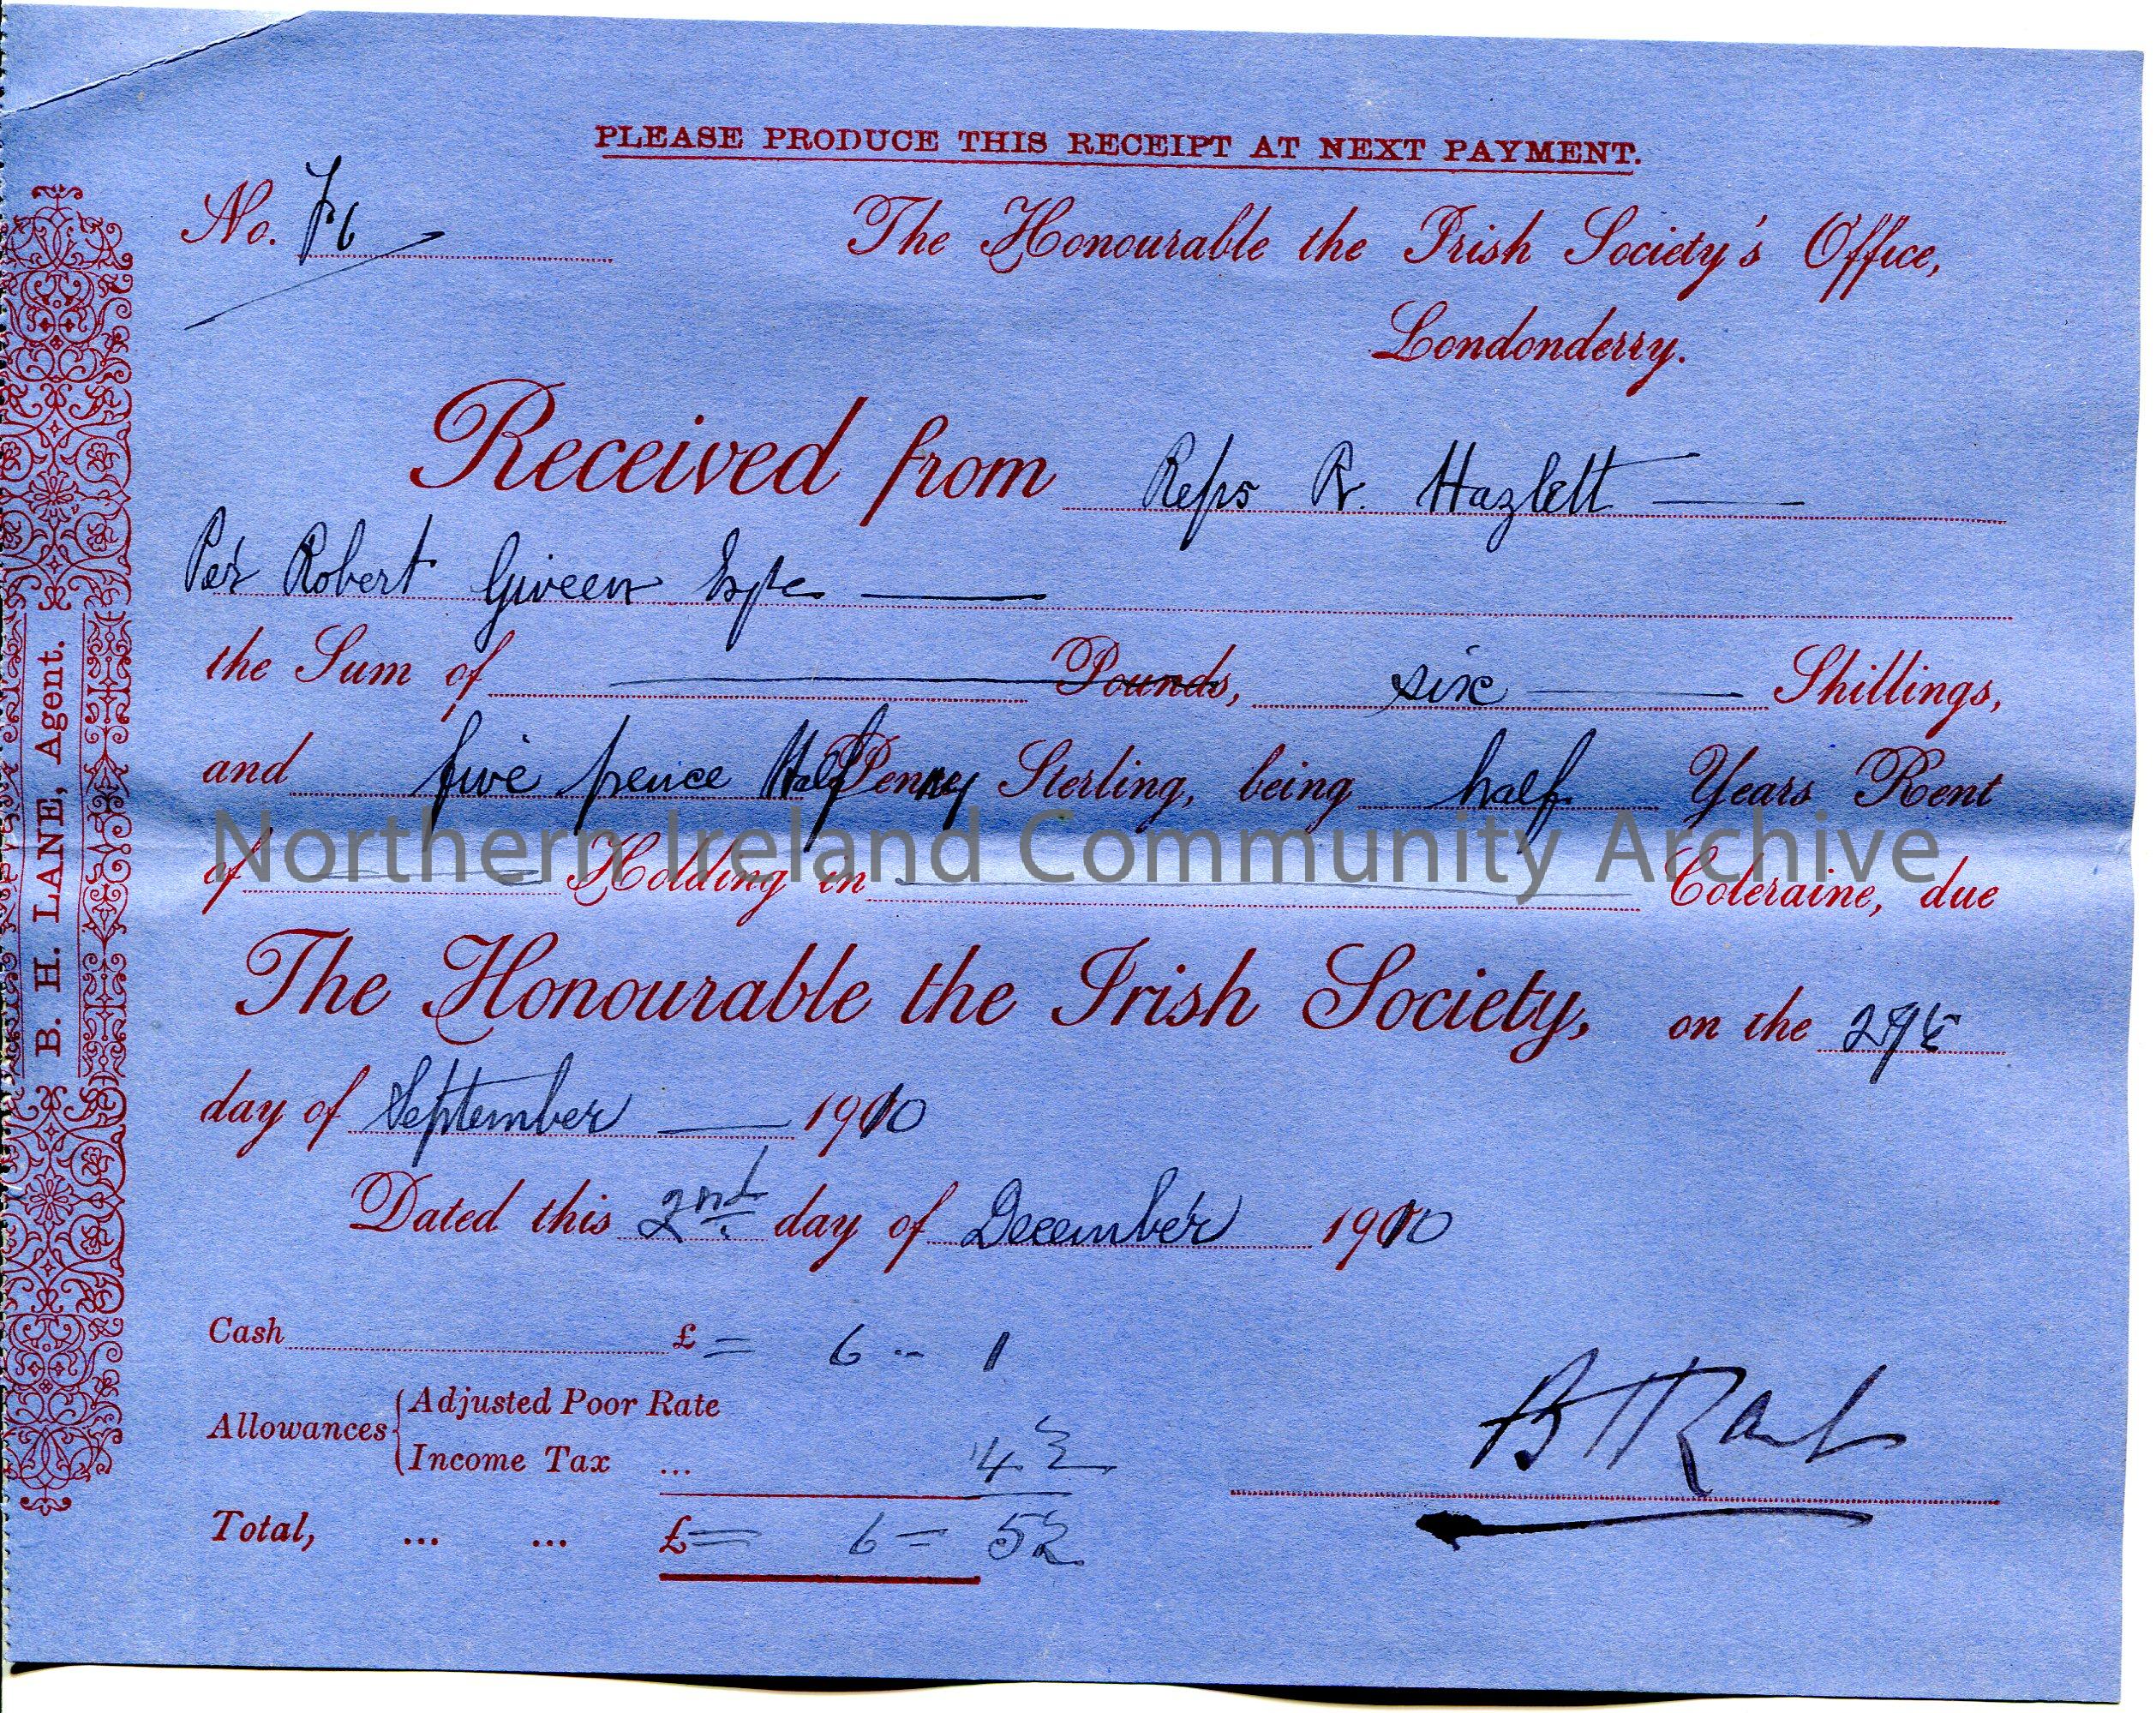 PLEASE PRODUCE THIS RECEIPT AT NEXT PAYMENT.
No.
The Honourable the Irish Society's Office,
Londonderry.
Received from Reps R. Hazlett
Per Robert Giveen Esqre
the Sum of Pounds, six Shillings,
and five pence Half Penny Sterling, being half Years Rent
of Holding in Coleraine, due
The Honourable the Irish Society, on the 29th
day of September 1910
Dated this 2nd day of December 1910
Cash £ = 6 .. 1
Allowances Adjusted Poor Rate
Income Tax ... 4½
Total, ... ... £ = 6 = 5½
B. H. LANE, Agent.
Northern Ireland Community Archive